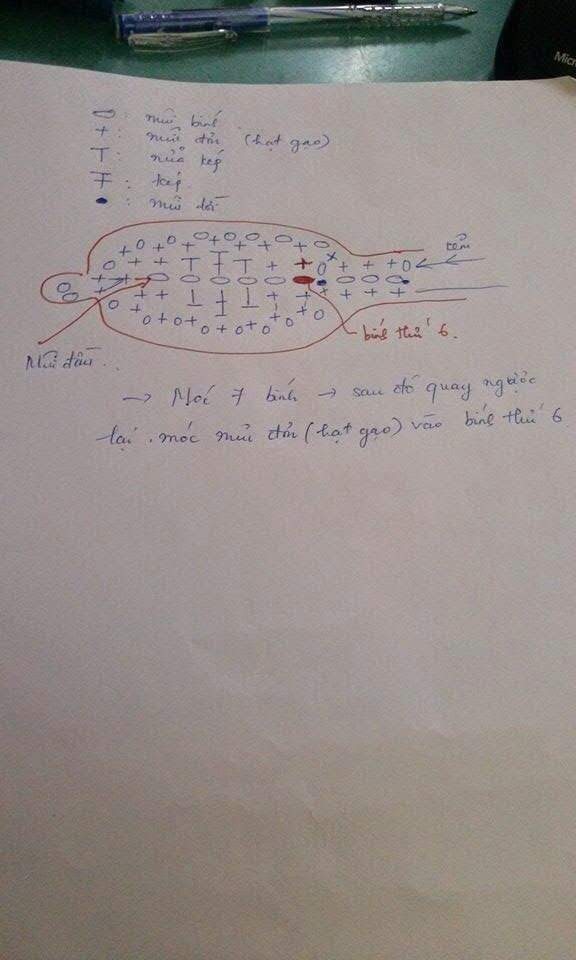 ⬭ : mũi bính
+ : mũi đơn (hạt gạo)
T : nửa kép
Ŧ : kép
• : mũi dời
bính thứ 6.
Mũi đầu..
→ Móc 7 bính → sau đó quay ngược
lại . móc mũi đơn (hạt gạo) vào bính thứ 6
Micro